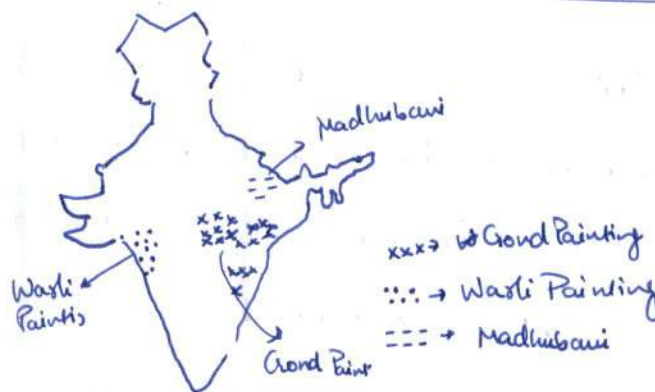 Madhubani
Warli
Painting
Gond Paint
xxx→ Gond Painting
→ Warli Painting
→ Madhubani